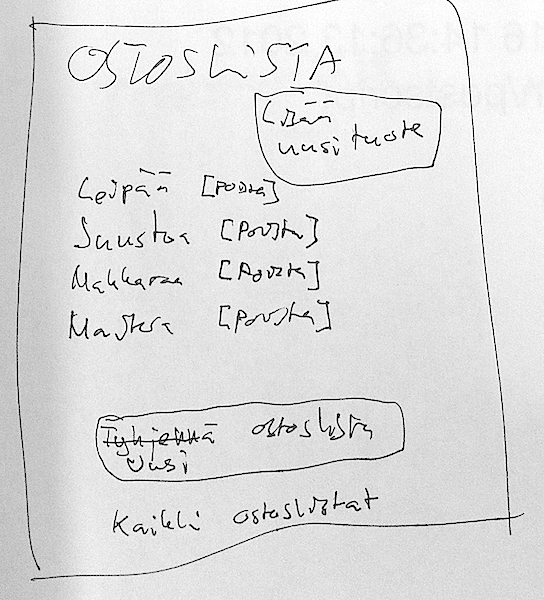 OSTOSLISTA
Lisää
uusi tuote
Leipää [Poista]
Juustoa [Poista]
Makkaraa [Poista]
Maitoa [Poista]
Tyhjennä ostoslista
Uusi
Kaikki ostoslistat